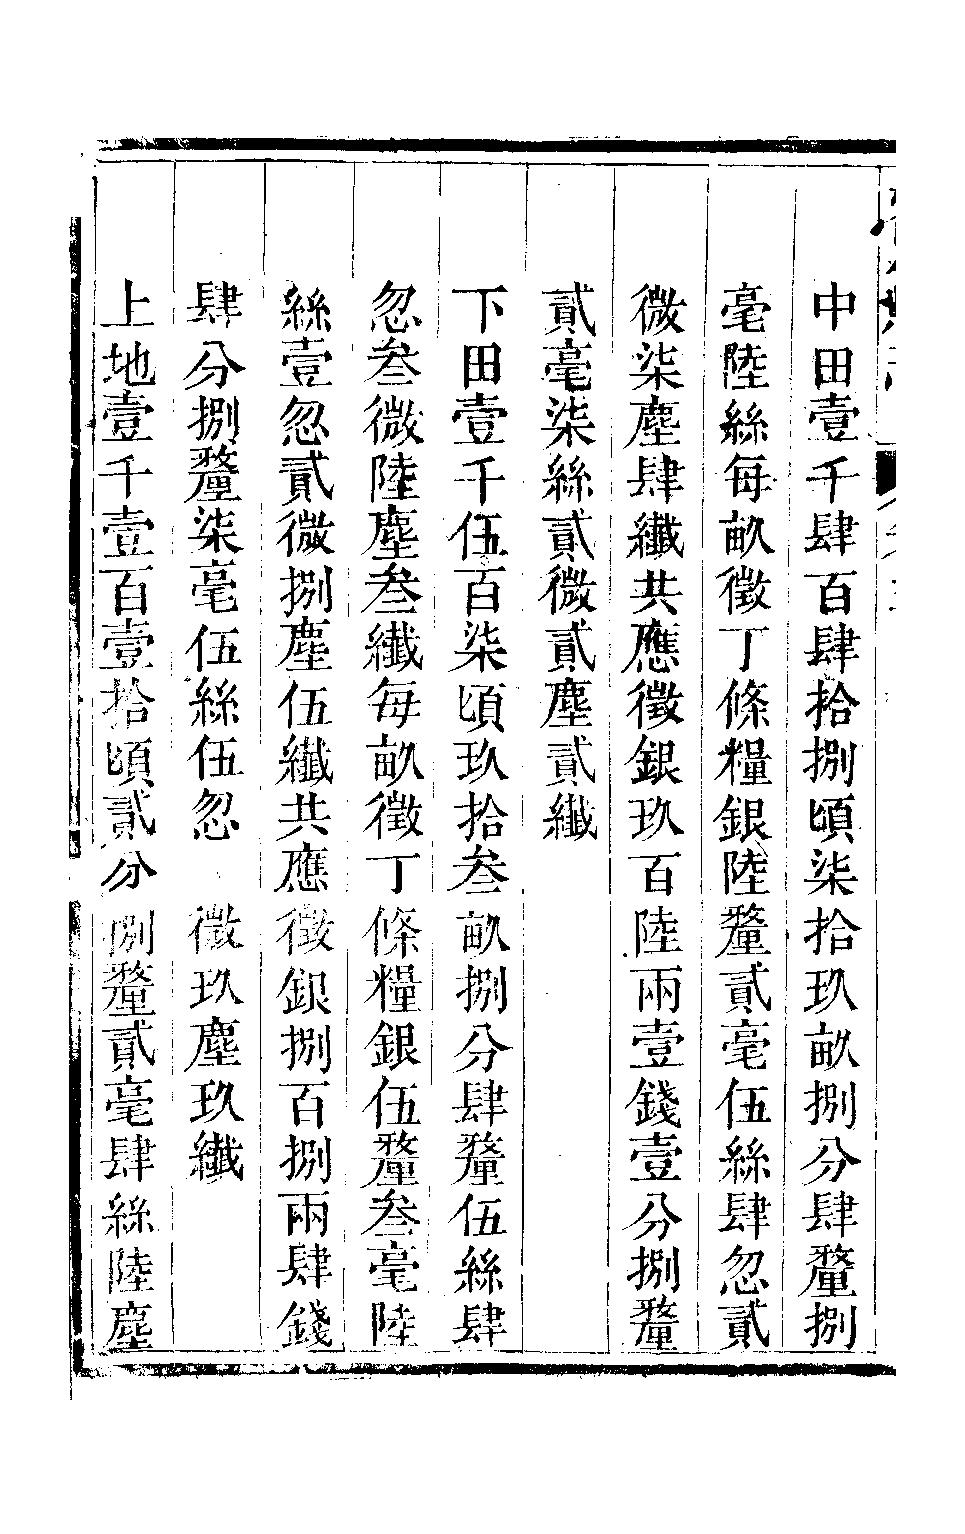 中田壹千肆百肆拾捌頃柒拾玖畝捌分肆釐捌
毫陸絲每畝徵丁條糧銀陸釐貳毫伍絲肆忽貳
微柒塵肆纖共應徵銀玖百陸兩壹錢壹分捌釐
貳毫柒絲貳微貳塵貳纖
下田壹千伍百柒頃玖拾叁畝捌分肆釐伍絲肆
忽叁微陸塵叁纖每畝徵丁條糧銀伍釐叁毫陸
絲壹忽貳微捌塵伍纖共應徵銀捌百捌兩肆錢
肆分捌釐柒毫伍絲伍忽 微玖塵玖纖
上地壹千壹百壹拾頃貳分捌釐貳毫肆絲陸塵